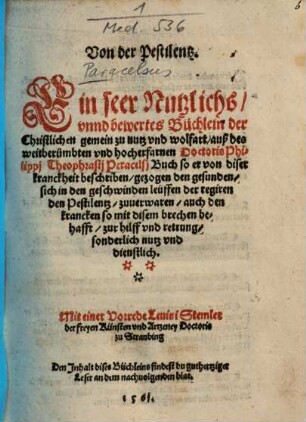 1
Med. 536
6
Von der Pestilentz.
Paracelsus
Ein seer Nutzlichs/
vnnd bewertes Büchlein der
Christlichen gemein zu nutz vnd wolfart/ auß des
weitberümbten vnd hocherfarnen Doctoris Phi/
lippi Theophrasti Paracelsi Buch so er von diser
kranckheit beschriben/ gezogen den gesunden/
sich in den geschwinden leüffen der regiren
den Pestilentz/ zuuerwaren/ auch den
krancken so mit disem brechen be/
hafft/ zur hilff vnd rettung/
sonderlich nutz vnd
dienstlich.
Mit einer Vorrede
der freyen Künsten vnd Artzeney Doctoris
zu Straubing
Den Inhalt dises Büchleins findest du guthertziger
Leser an dem nachuolgenden blat.
1561.